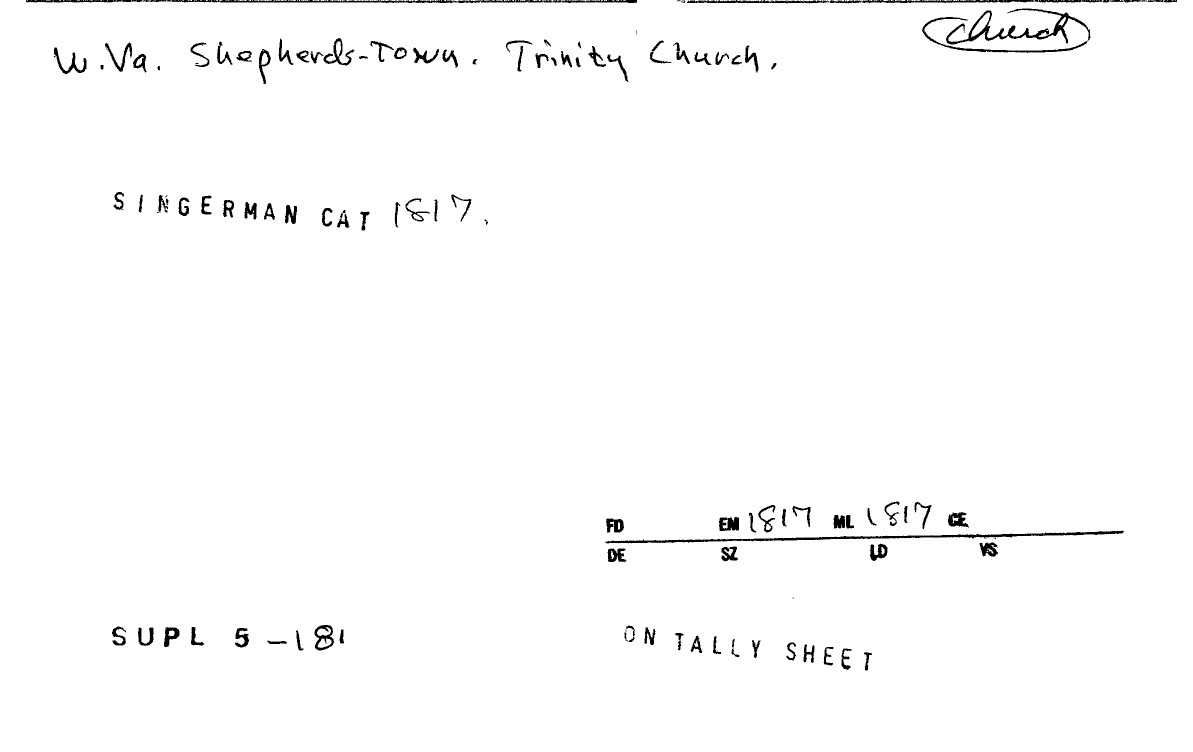 Church
W.Va. Shepherds-Town. Trinity Church.
SINGERMAN CAT 1817.
FD EM 1817 ML 1817 CE
DE SZ LD VS
SUPL 5 -181
ON TALLY SHEET